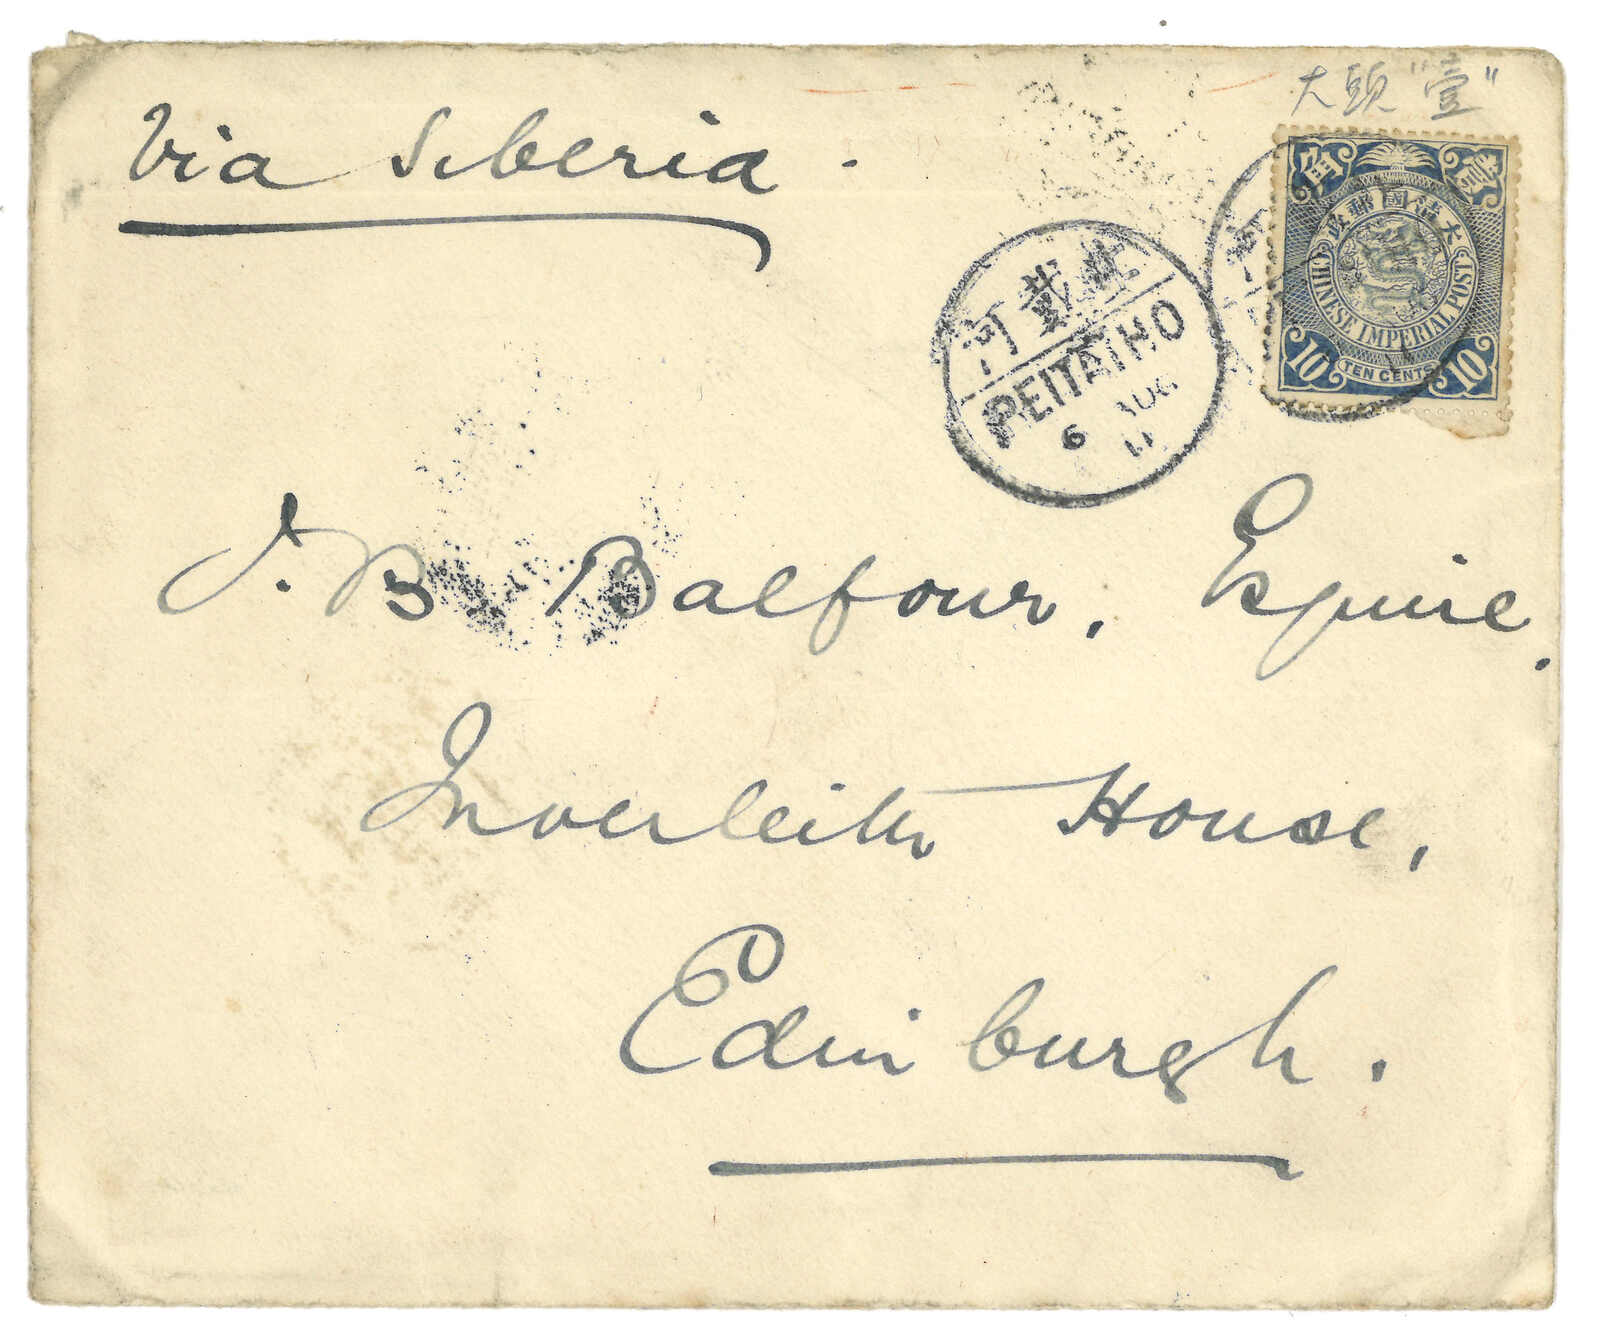 Via Siberia.
大頭"壹"
大清國郵政
CHINESE IMPERIAL POST
10 TEN CENTS 10
北戴河
PEITAIHO
6 AUG
11
J. B. Balfour, Esquire.
Inverleith House,
Edinburgh.